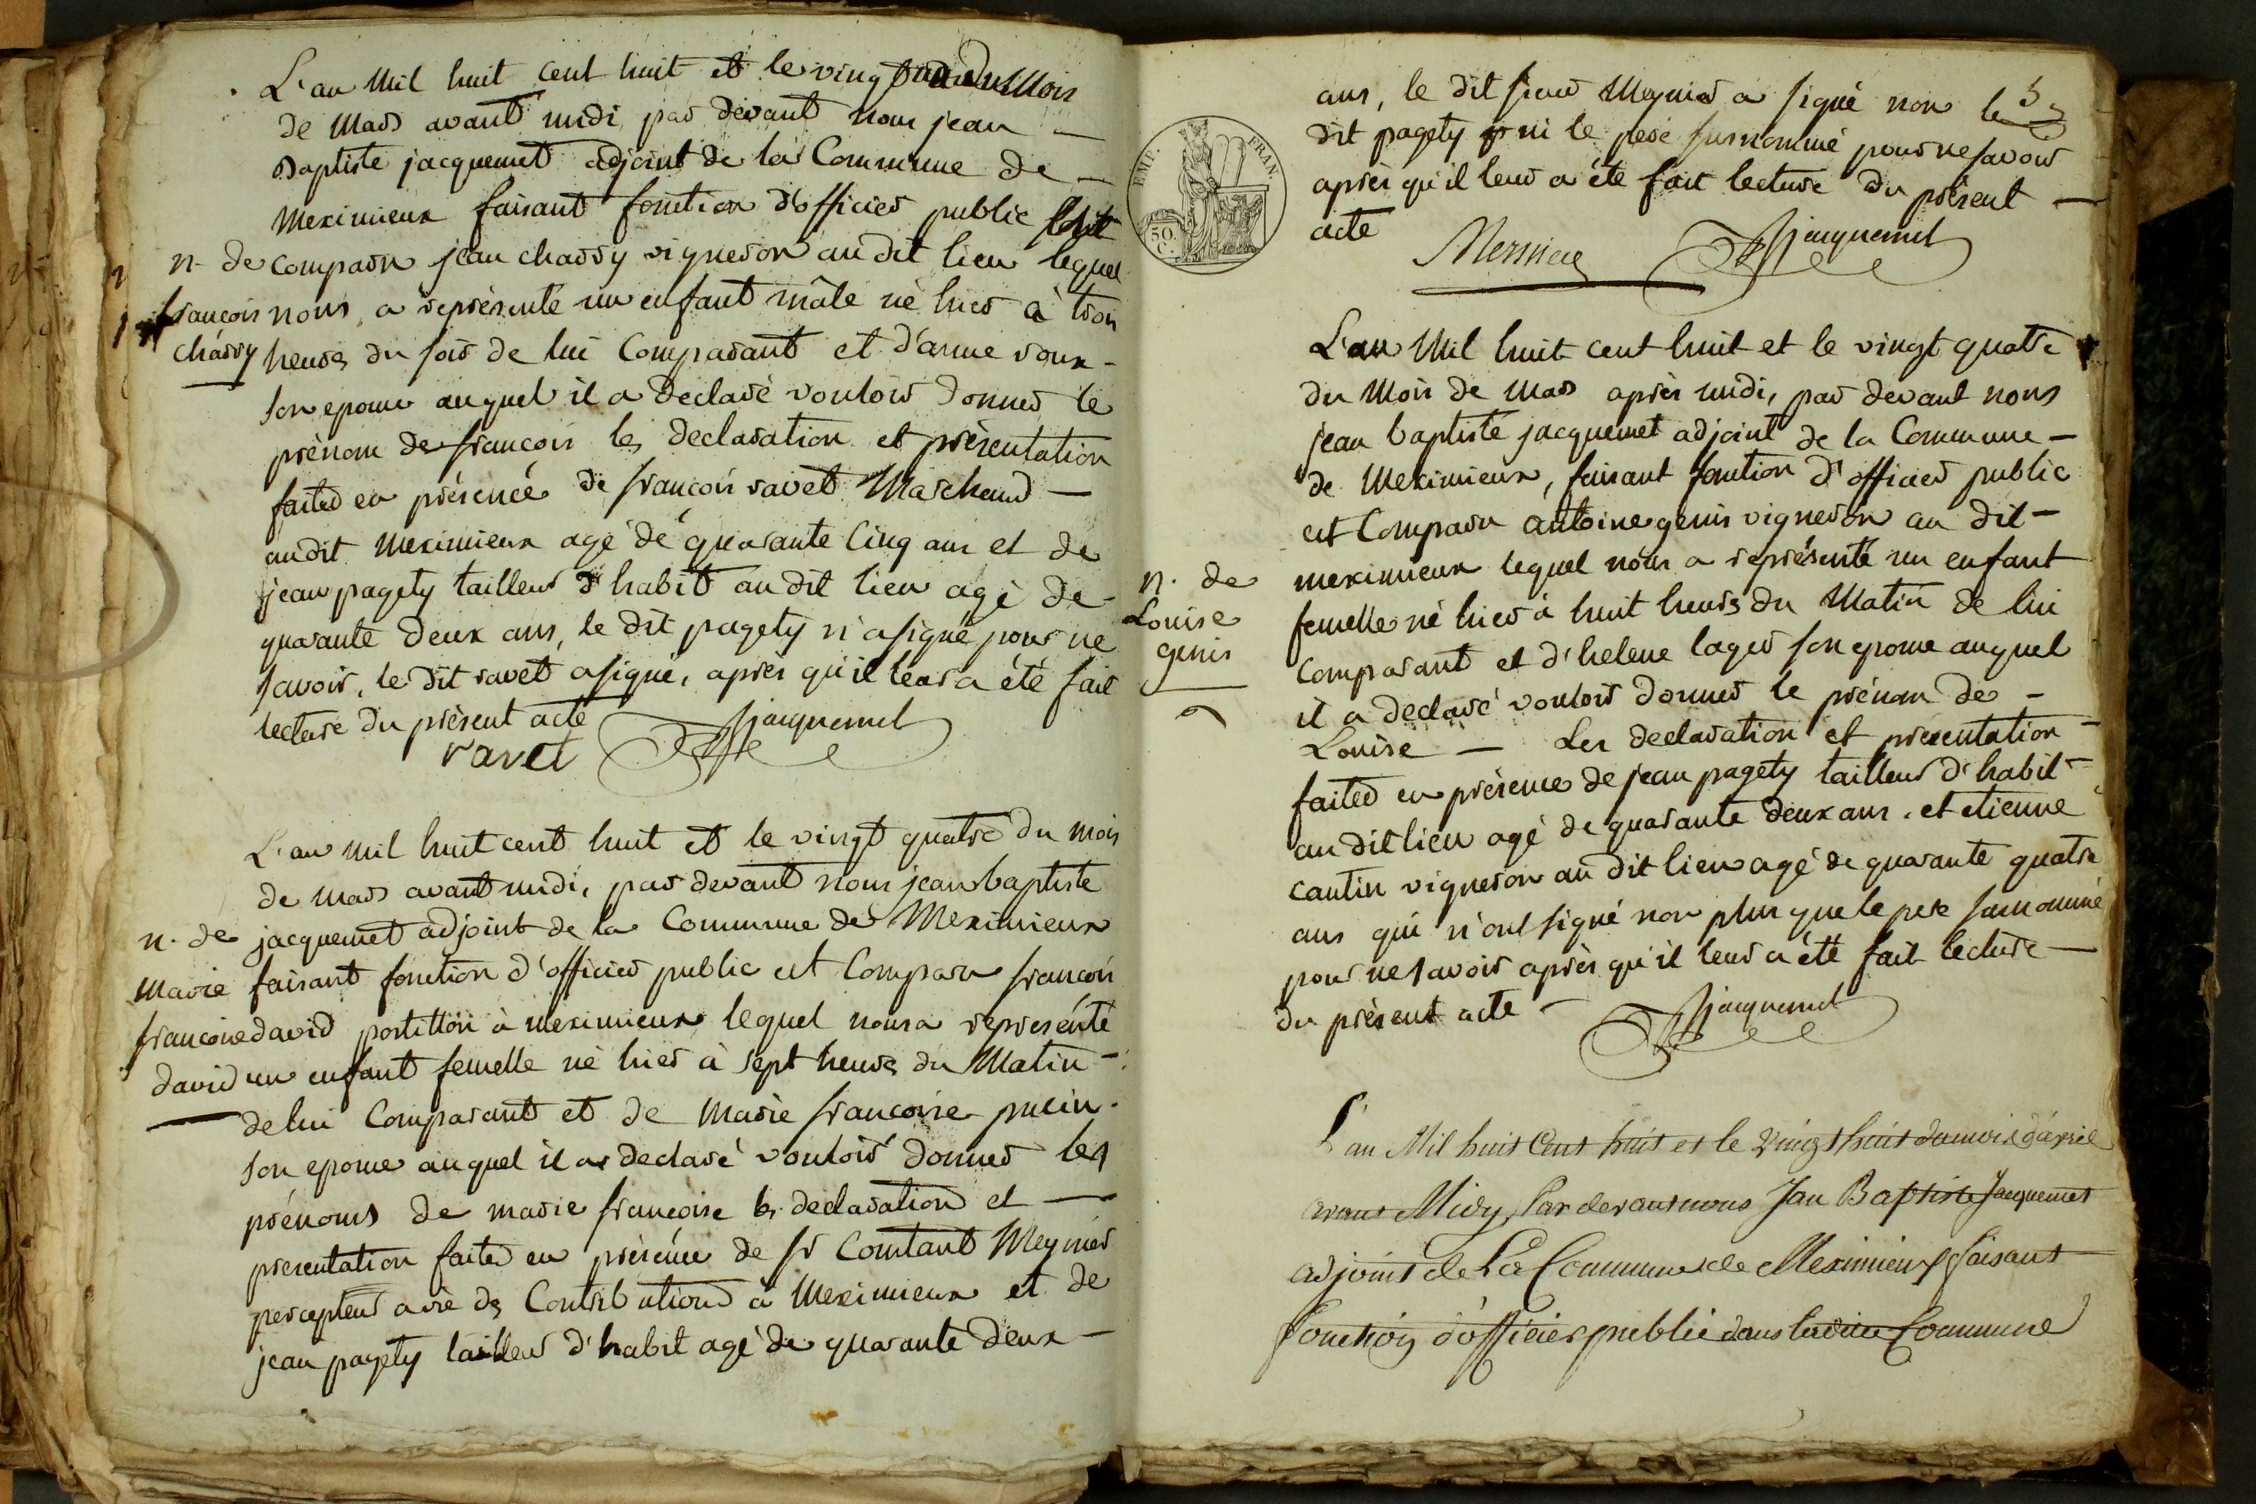 L'an mil huit cent huit et le vingt du Mois
de Mars avant midi, par devant nous jean —
Baptiste jacquemet adjoint de la Commune de —
Meximieux faisant fonction d'officier public est
n. de comparu jean charvy vigneron au dit lieu lequel
françois nous a représenté un enfant mâle né hier à trois
charvy heures du soir de lui Comparant et d'anne roux -
son epouse auquel il a declaré vouloir donner le
prénom de françois les declaration et présentation
faites en présence de françois ravet Marchand —
audit Meximieux agé de quarante Cinq ans et de
jean pagety tailleur d'habit au dit lieu agé de -
quarante deux ans, le dit pagety n'a signé pour ne
savoir, le dit ravet a signé, après qu'il leur a été fait
lecture du présent acte
ravet jacquemet
L'an mil huit cent huit et le vingt quatre du mois
de mars avant midi, par devant nous jean baptiste
n. de jacquemet adjoint de la Commune de Meximieux
Marie faisant fonction d'officier public est Comparu françois
françoise david postillon à meximieux lequel nous a représenté
david un enfant femelle né hier à sept heures du Matin -
de lui Comparant et de Marie françoise pucin -
son epouse auquel il a declaré vouloir donner les
prénoms de marie françoise les declaration et —
presentation faites en présence de sr Constant Meynier
percepteur a vie des Contributions à Meximieux et de
jean pagety tailleur d'habit agé de quarante deux —
5
ans, le dit sieur Meynier a signé non le
dit pagety ni le pere susnommé pour ne savoir
après qu'il leur a été fait lecture du présent —
acte
EMP. FRAN.
50 C.
Meynier jacquemet
L'an Mil huit cent huit et le vingt quatre
du Mois de Mars après midi, par devant nous
jean baptiste jacquemet adjoint de la Commune —
de Meximieux, faisant fonction d'officier public
est Comparu antoine genis vigneron au dit —
n. de meximieux lequel nous a représenté un enfant
Louise femelle né hier à huit heures du Matin de lui
genis comparant et d'helene lager son epouse auquel
il a declaré vouloir donner le prénom de -
Louise — Les declaration et presentation -
faites en présence de jean pagety tailleur d'habit -
au dit lieu agé de quarante deux ans. et etienne
cantin vigneron au dit lieu agé de quarante quatre
ans qui n'ont signé non plus que le pere surnommé
pour ne savoir après qu'il leur a été fait lecture —
du présent acte - jacquemet
L'an Mil huit Cent huit et le Vingt huit du mois d'avril
avant Midy, Par devant nous Jean Baptiste Jacquemet
adjoint de La Commune de Meximieux faisant
fonction d'officier public dans ladite Commune